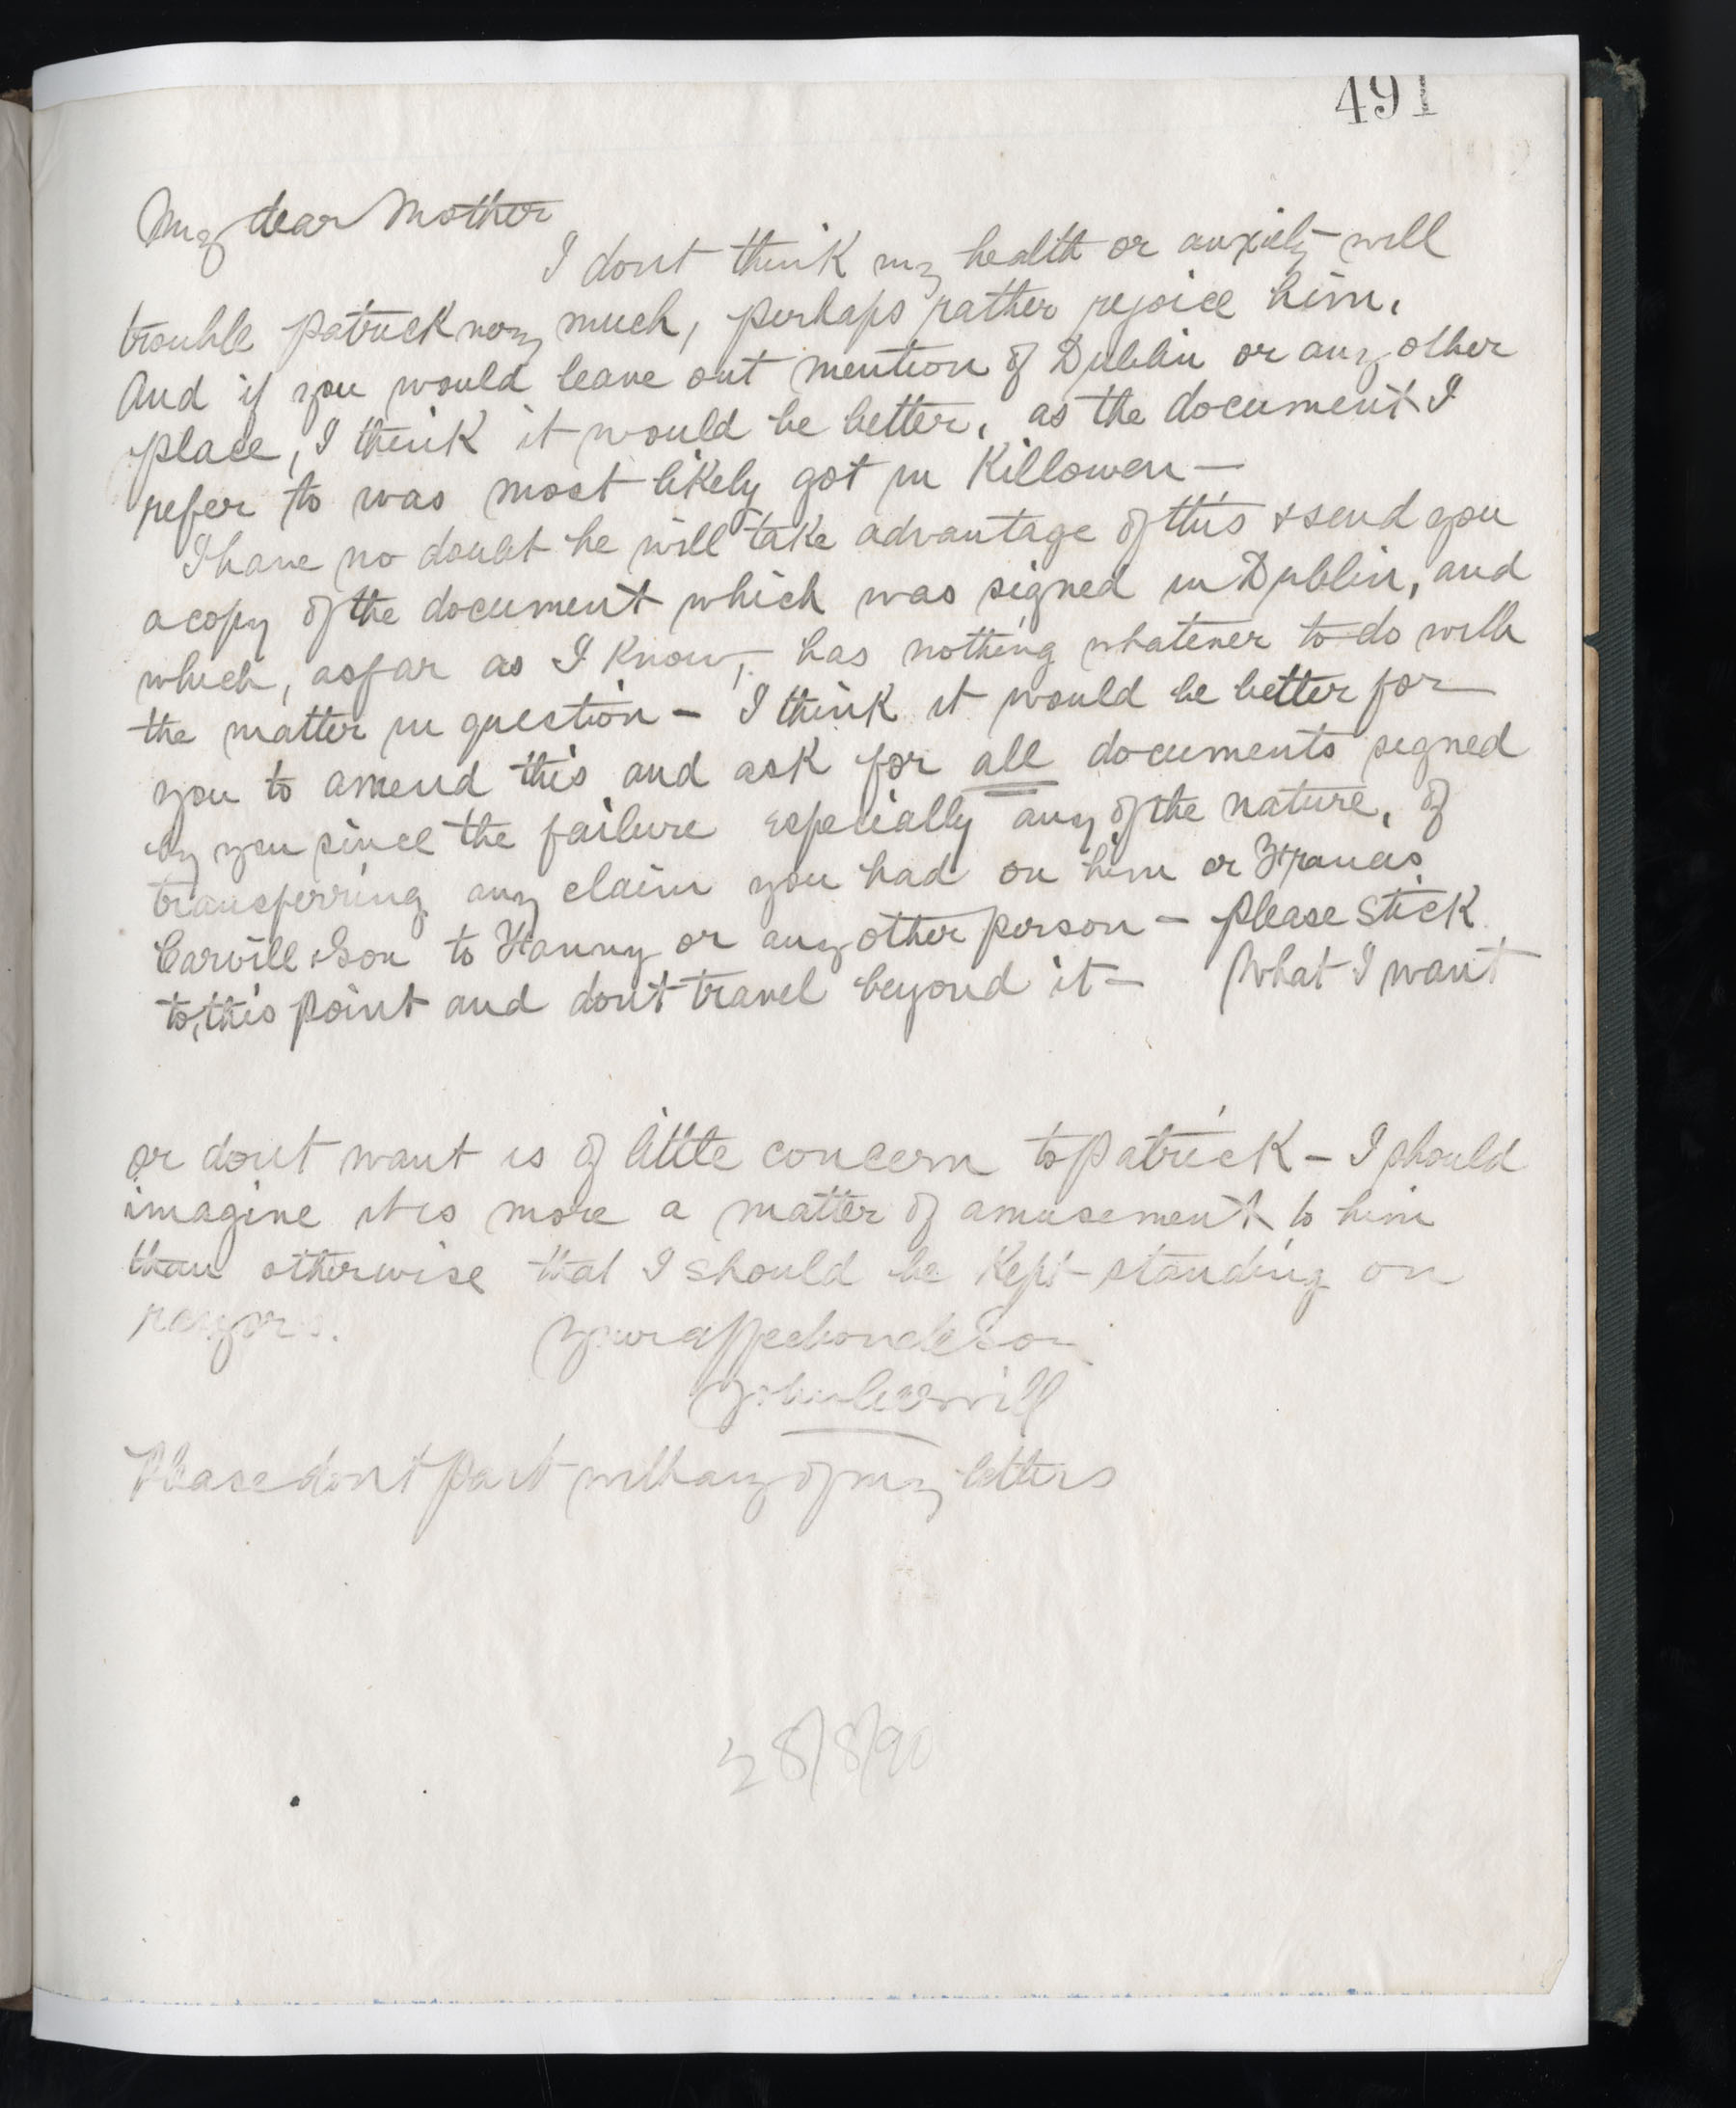 491
My dear Mother
I dont think my health or anxiety will
trouble Patrick very much, perhaps rather rejoice him.
And if you would leave out mention of Dublin or any other
place, I think it would be better, as the document I
refer to was most likely got in Killowen —
I have no doubt he will take advantage of this & send you
a copy of the document which was signed in Dublin, and
which, as far as I know, has nothing whatever to do with
the matter in question — I think it would be better for
you to amend this and ask for all documents signed
by you since the failure especially any of the nature, of
transferring any claim you had on him or Francis
Carvill & Son to Hanny or any other person — Please stick
to this point and dont travel beyond it — What I want
or dont want is of little concern to Patrick — I should
imagine it is more a matter of amusement to him
than otherwise that I should be Kept standing on
razors.
Your affectionate Son
John Carvill
Please dont part with any of my letters
28/8/90